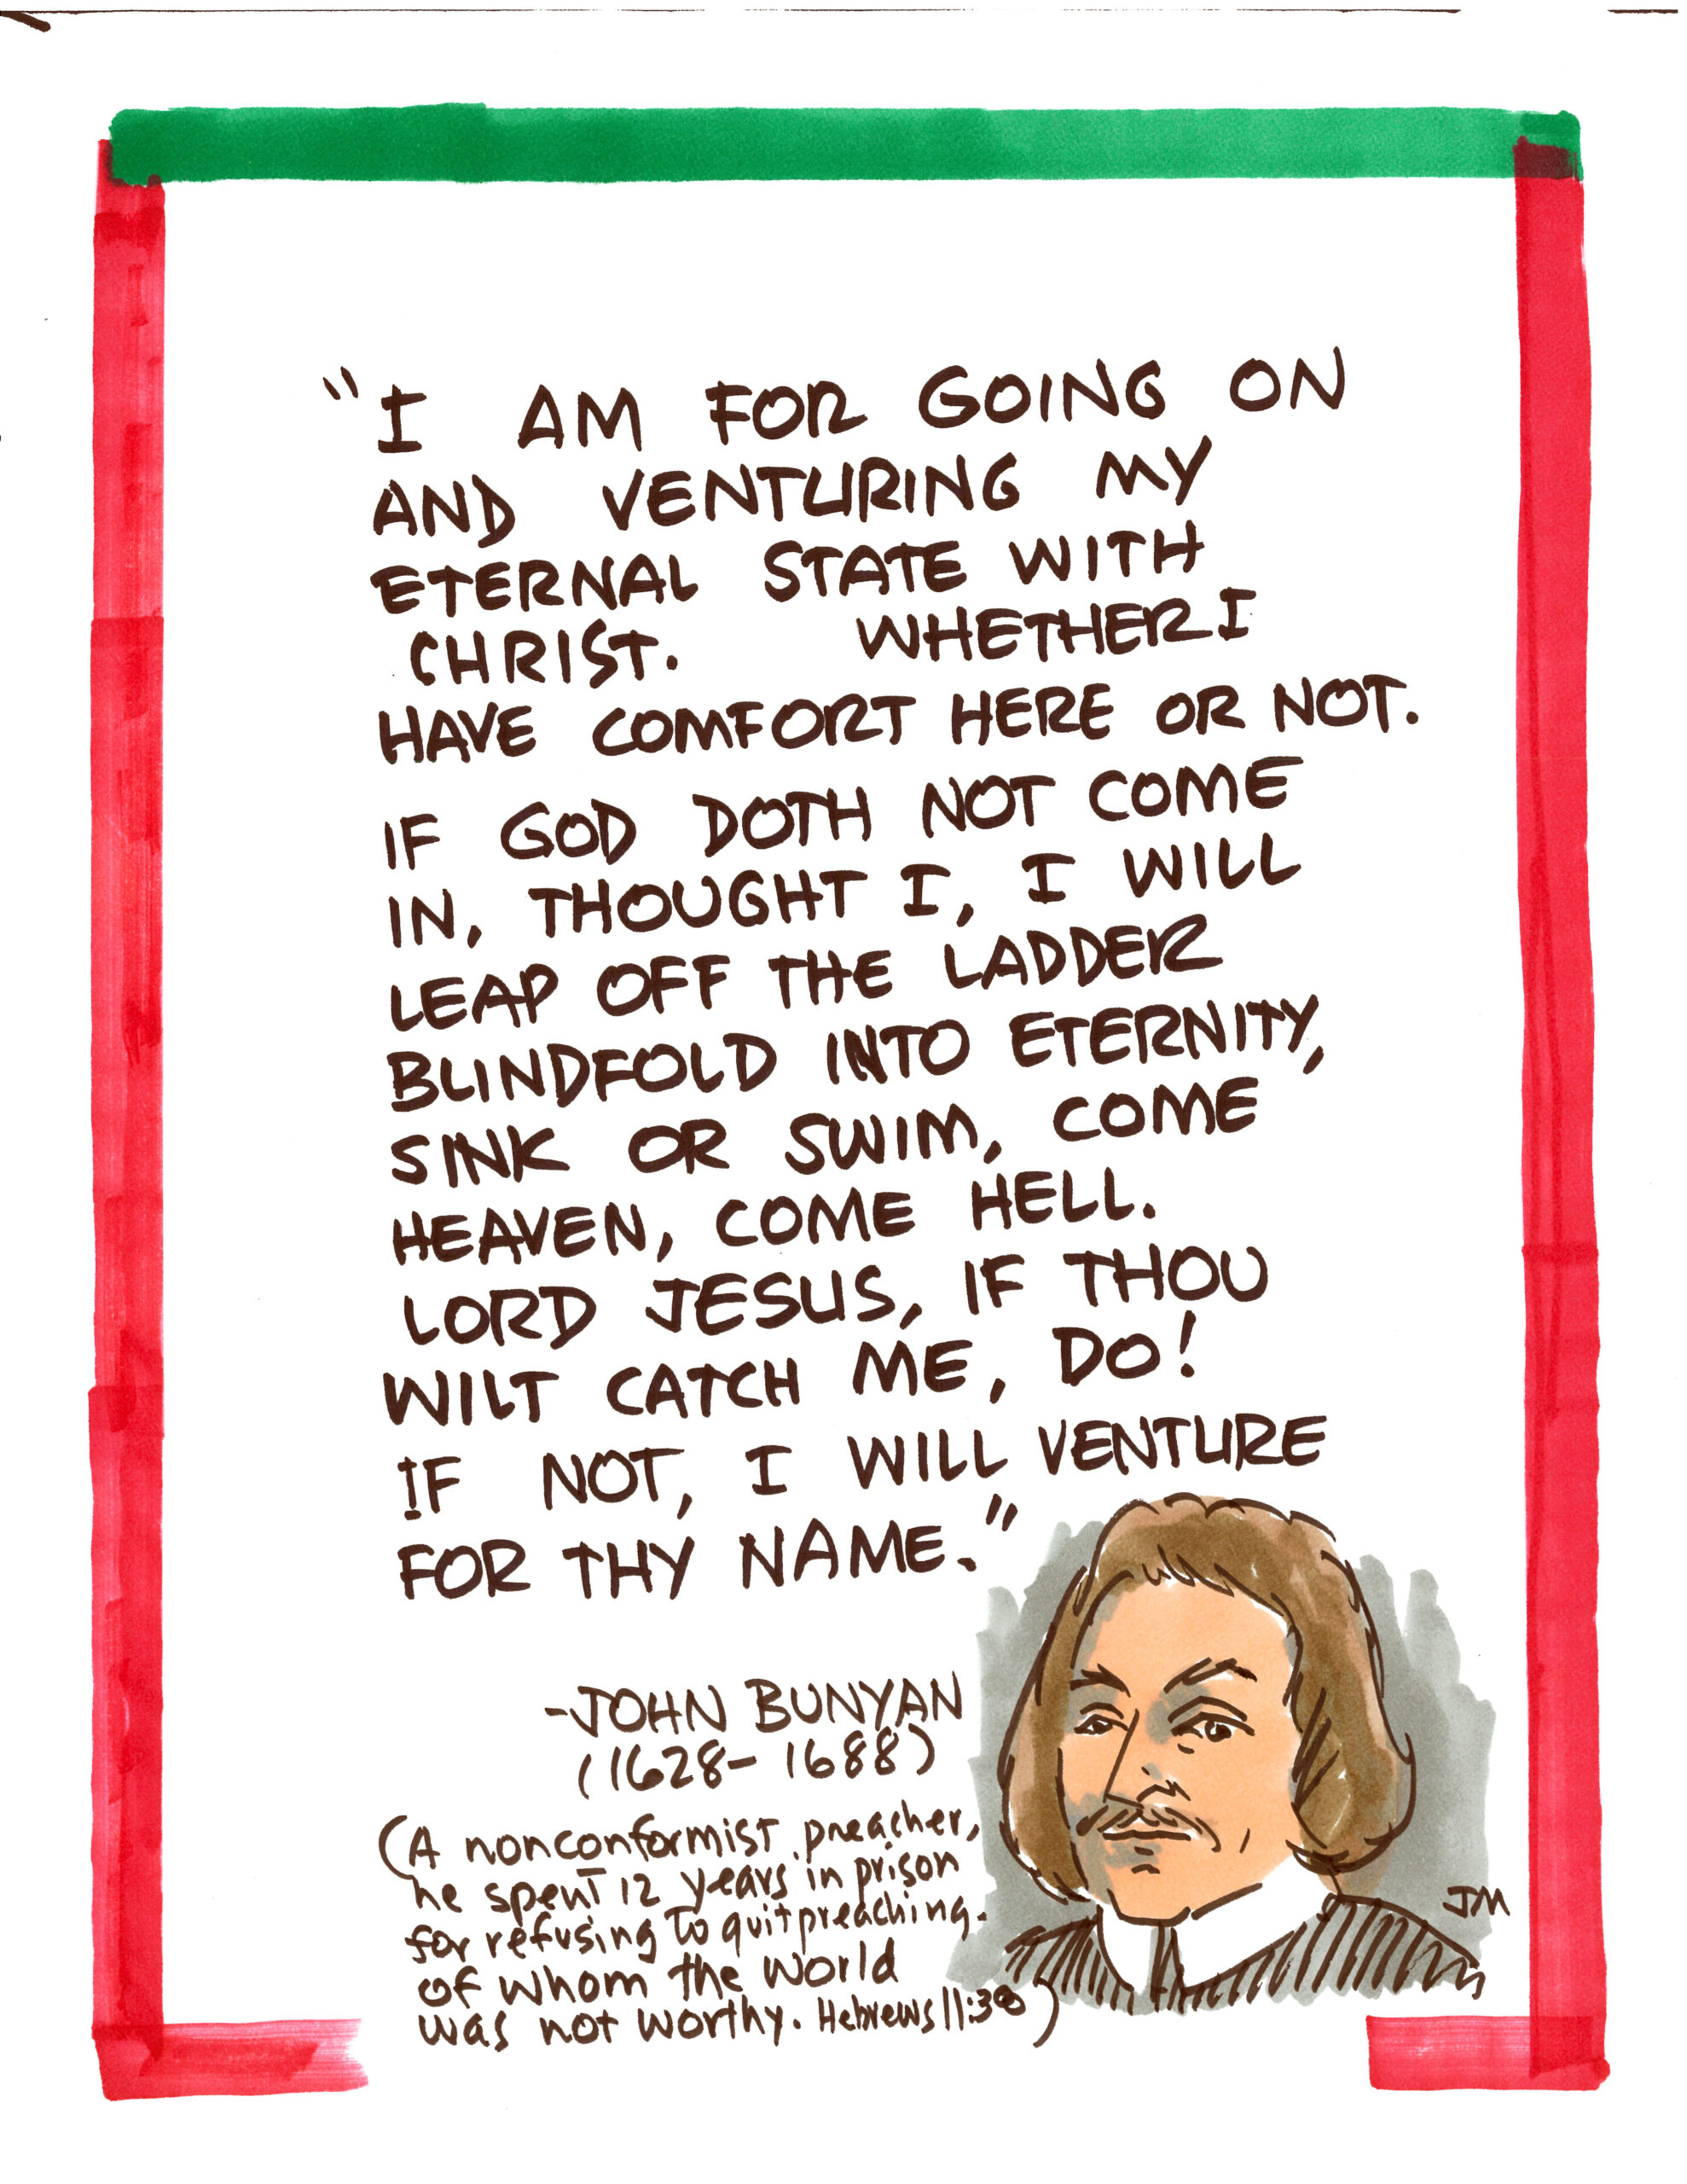 "I AM FOR GOING ON
AND VENTURING MY
ETERNAL STATE WITH
CHRIST. WHETHER I
HAVE COMFORT HERE OR NOT.
IF GOD DOTH NOT COME
IN, THOUGHT I, I WILL
LEAP OFF THE LADDER
BLINDFOLD INTO ETERNITY,
SINK OR SWIM, COME
HEAVEN, COME HELL.
LORD JESUS, IF THOU
WILT CATCH ME, DO!
IF NOT, I WILL VENTURE
FOR THY NAME."
-JOHN BUNYAN
(1628-1688)
(A nonconformist preacher,
he spent 12 years in prison
for refusing to quit preaching.
of whom the world
was not worthy. Hebrews 11:38)
JM